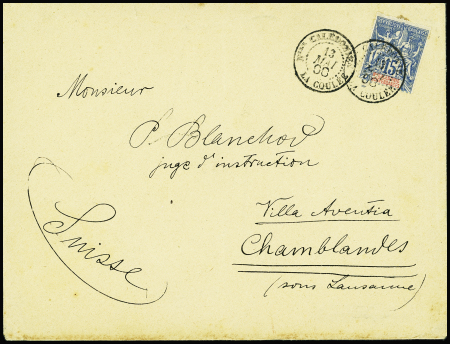 Nlle CALEDONIE
13
MAI
00
LA COULEE
15
LA COULEE
Monsieur
P. Blanchod
juge d'instruction
Villa Aventia
Chamblandes
(sous Lausanne)
Suisse